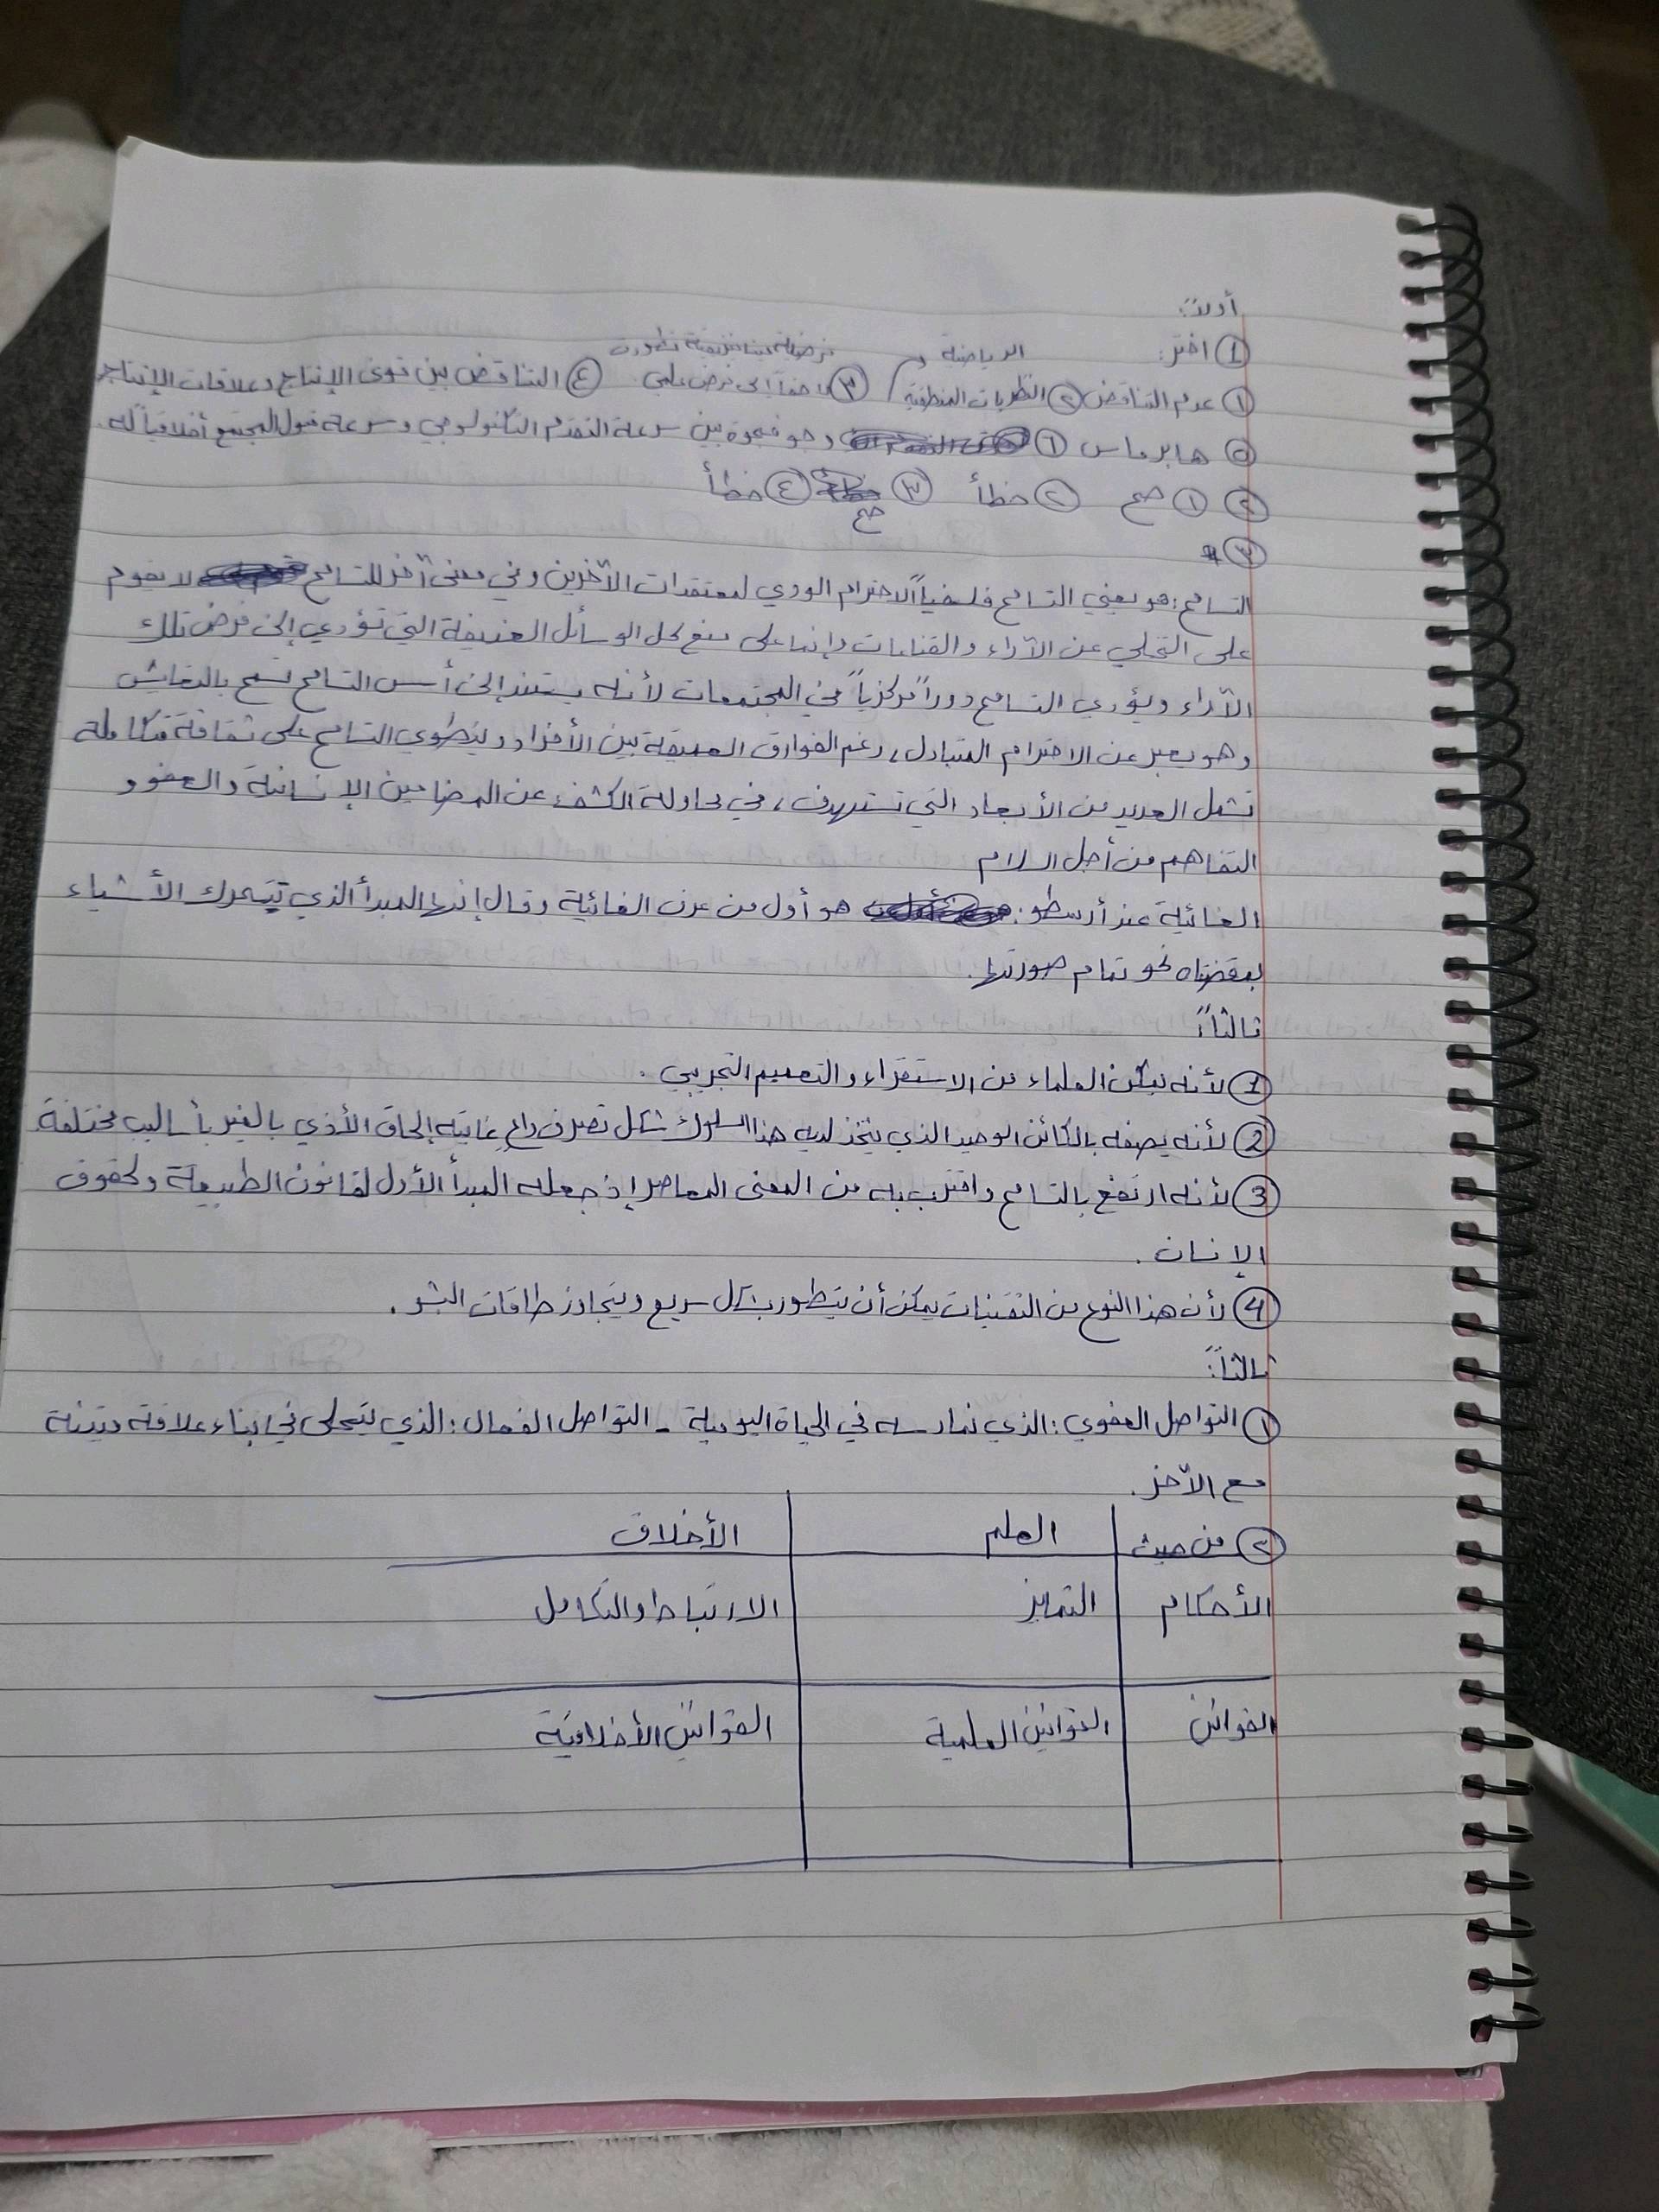 أولاً:
① اختر: الرياضية و فرضية ميتافيزيقية تطورت
① عدم التناقض ② النظريات المنطقية ③ لاحقاً إلى فرض علمي ④ التناقض بين قوى الإنتاج وعلاقات الإنتاج
⑤ هابرماس ⑥ وجو فجوة بين سرعة التقدم التكنولوجي وسرعة قبول المجتمع أخلاقياً له
② ① صح ② خطأ ③ صح ④ خطأ
③
التسامح: هو يعني التسامح فلسفياً الاحترام الودي لمعتقدات الآخرين وفي معنى آخر للتسامح لا يقوم
على التخلي عن الآراء والقناعات وإنما على منع كل الوسائل العنيفة التي تؤدي إلى فرض تلك
الآراء ويؤدي التسامح دوراً مركزياً في المجتمعات لأنه يستند إلى أسس التسامح تسمح بالتعايش
وهو يعبر عن الاحترام المتبادل، رغم الفوارق العميقة بين الأفراد وينطوي التسامح على ثقافة متكاملة
تشمل العديد من الأبعاد التي تستهدف، في محاولة الكشف عن المضامين الإنسانية والعفو و
التفاهم من أجل السلام
الغائية عند أرسطو: هو أول من عرف الغائية وقال إنها المبدأ الذي تتحرك الأشياء
بمقتضاه نحو تمام صورتها.
ثالثاً:
① لأنه يمكن العلماء من الاستقراء والتعميم التجريبي.
② لأنه يصفه بالكائن الوحيد الذي يتخذ لديه هذا السلوك شكل تصرف واعٍ غايته إلحاق الأذى بالغير بأساليب مختلفة
③ لأنه ارتفع بالتسامح واقترب به من المعنى المعاصر إذ جعله المبدأ الأول لقانون الطبيعة ولحقوق
الإنسان.
④ لأن هذا النوع من التقنيات يمكن أن يتطور بشكل سريع ويتجاوز طاقات البشر.
ثالثاً:
① التواصل العفوي: الذي نمارسه في الحياة اليومية - التواصل الفعال: الذي يتجلى في بناء علاقة متينة
مع الآخر.
② من حيث العلم الأخلاق
الأحكام التمايز الارتباط والتكامل
القوانين القوانين العلمية القوانين الأخلاقية